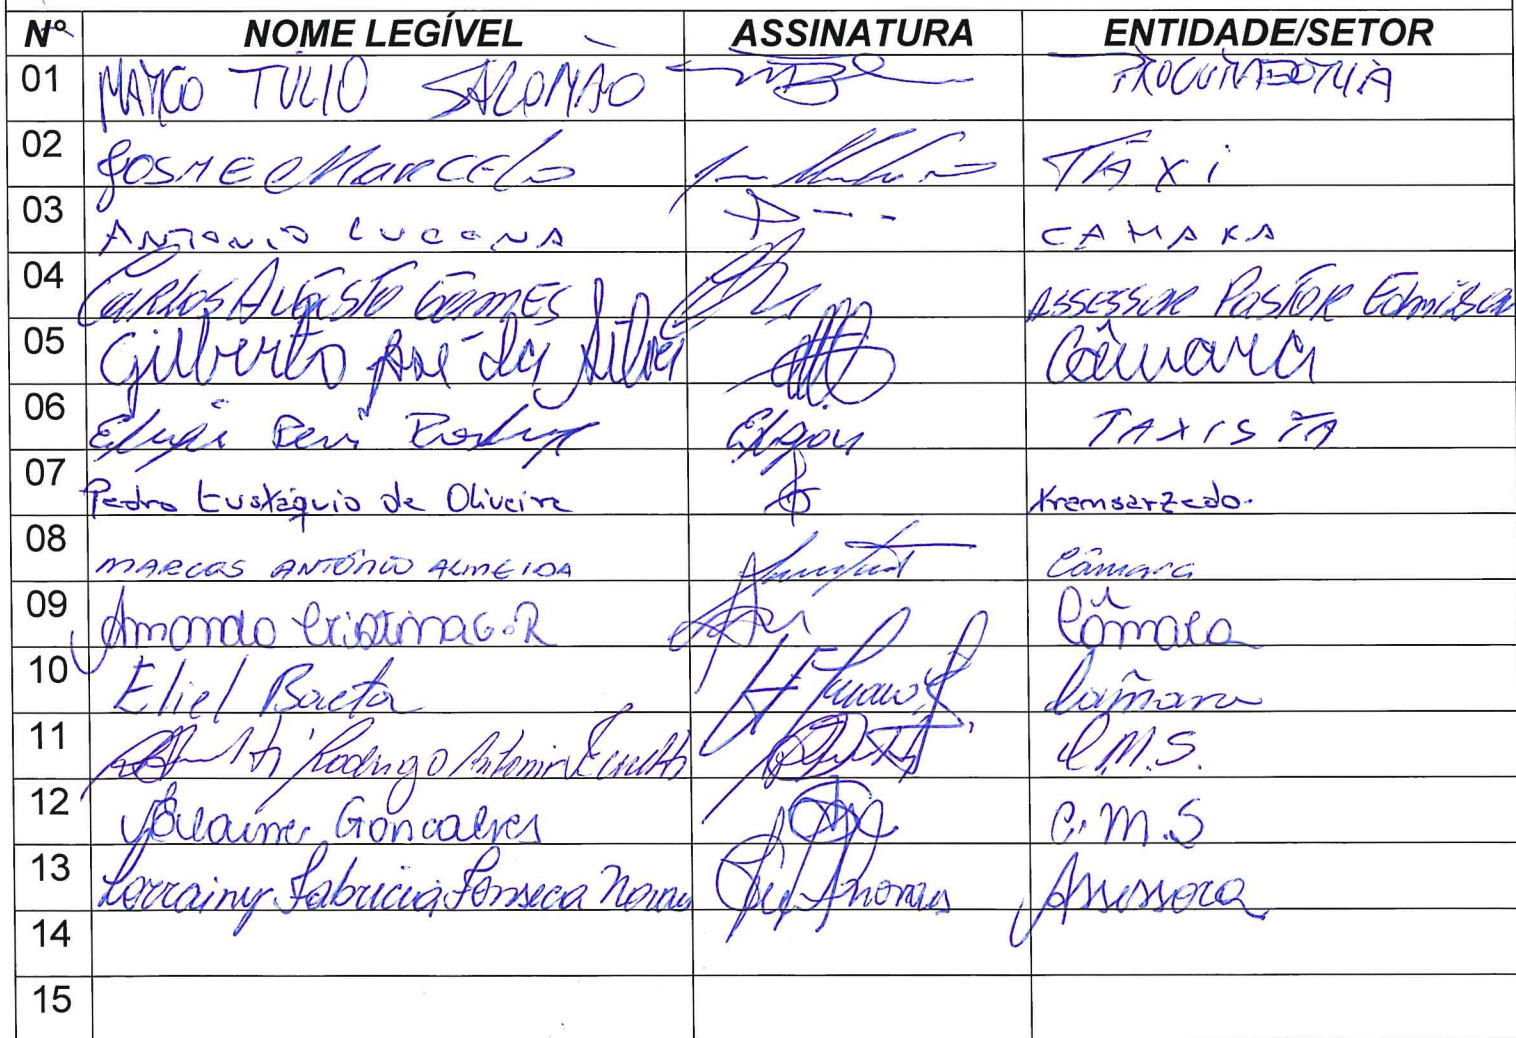 Nº NOME LEGÍVEL ASSINATURA ENTIDADE/SETOR
01 MARCO TÚLIO SALOMÃO PROCURADORIA
02 JOSME MARCELO TÁXI
03 ANTONIO LUCENA CAMARA
04 CARLOS AUGUSTO GOMES ASSESSOR PASTOR Edmilson
05 Gilberto José da Silva Câmara
06 TAXISTA
07 Pedro Eustáquio de Oliveira transarzedo.
08 MARCOS ANTÔNIO ALMEIDA Câmara
09 Amanda Cristina G.R Câmara
10 Eliel Baeta Câmara
11 Rodrigo Antonio C.M.S.
12 Elaine Goncalves C.M.S
13 Lorrainy Fabricia Fonseca Novais Assessora
14
15